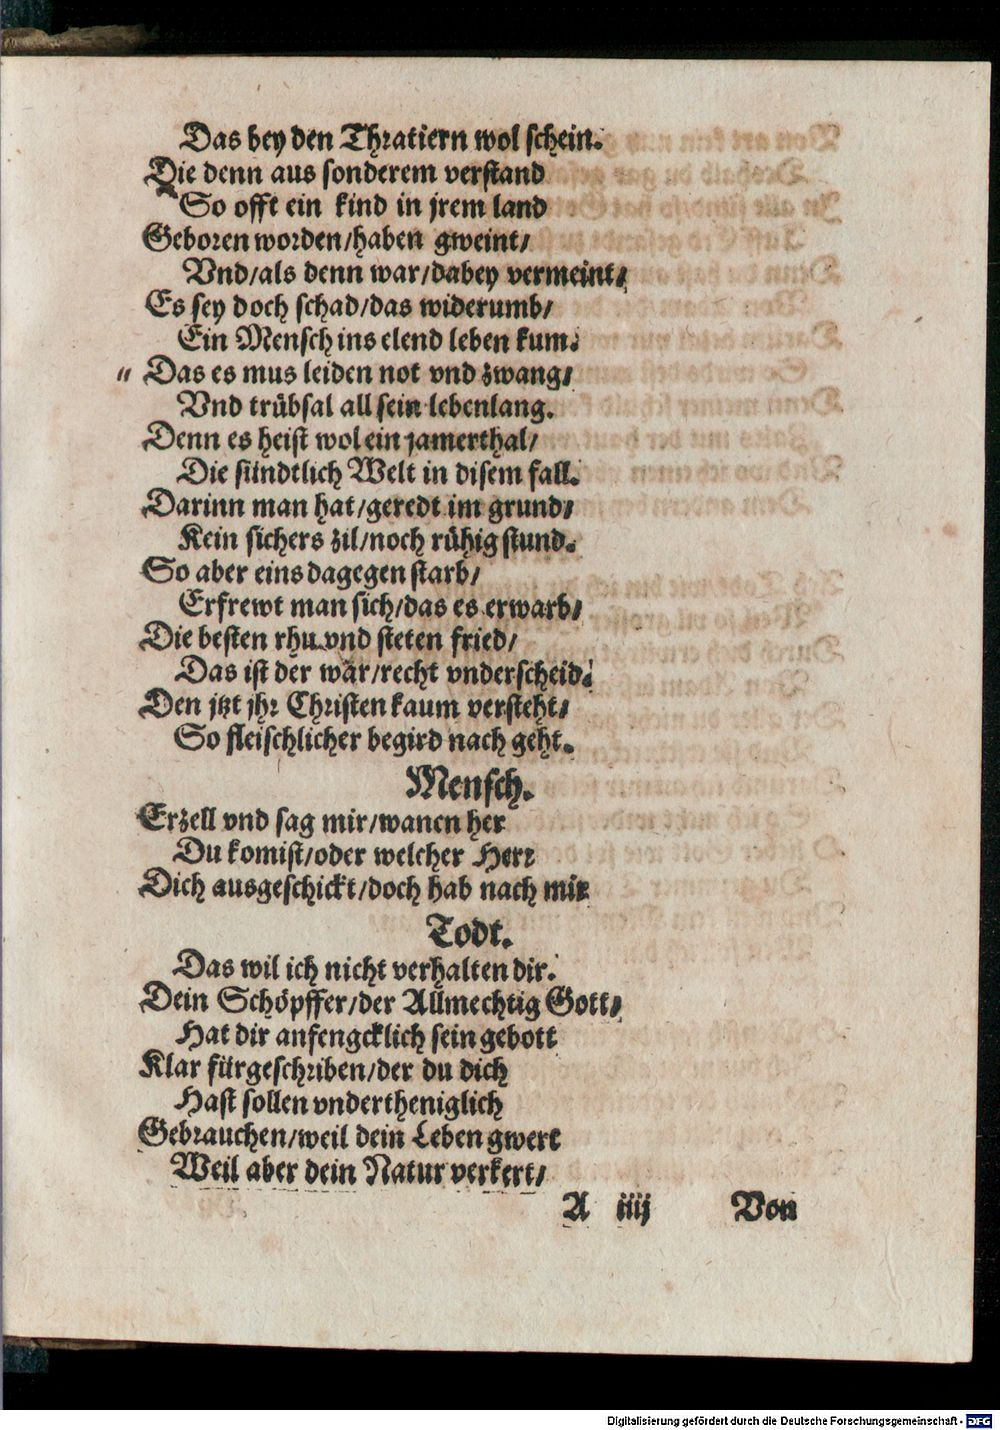 Das bey den Thratiern wol schein.
Die denn aus sonderem verstand
So offt ein kind in jrem land
Geboren worden/haben gweint/
Vnd/als denn war/dabey vermeint/
Es sey doch schad/das widerumb/
Ein Mensch ins elend leben kum.
" Das es mus leiden not vnd zwang/
Vnd trübsal all sein lebenlang.
Denn es heist wol ein jamerthal/
Die sündtlich Welt in disem fall.
Darinn man hat/geredt im grund/
Kein sichers zil/noch rühig stund.
So aber eins dagegen starb/
Erfrewt man sich/das es erwarb/
Die besten rhu vnd steten fried/
Das ist der war/recht vnderscheid.
Den jtzt jhr Christen kaum versteht/
So fleischlicher begird nach geht.
Mensch.
Erzell vnd sag mir/wanen her
Du komist/oder welcher Herr
Dich ausgeschickt/doch hab nach mir
Todt.
Das wil ich nicht verhalten dir.
Dein Schöpffer/der Allmechtig Gott/
Hat dir anfengcklich sein gebott
Klar fürgeschriben/der du dich
Hast sollen vndertheniglich
Gebrauchen/weil dein Leben gwert
Weil aber dein Natur verkert/
A iiij Von
Digitalisierung gefördert durch die Deutsche Forschungsgemeinschaft - DFG